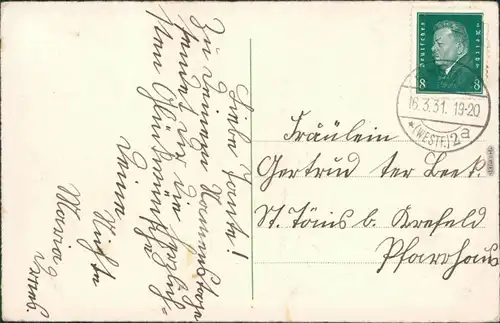 Liebe Tante!
Zu Deinem Namenstage
sendet Dir die herzlich-
sten Glückwünsche
Deine
Nichte
Maria
Deutsches Reich
8 8
16.3.31. 19-20
* (WESTF.) 2a
Fräulein
Gertrud ter Beek
St. Tönis b. Krefeld
Pfarrhaus